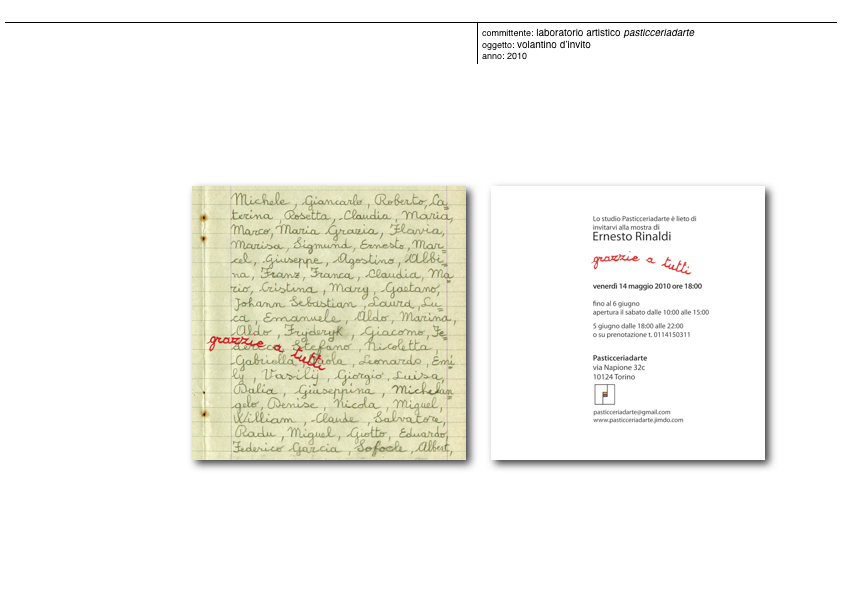 committente: laboratorio artistico pasticceriadarte
oggetto: volantino d'invito
anno: 2010
Michele, Giancarlo, Roberto, Ca=
terina, Rosetta, Claudia, Maria,
Marco, Maria Grazia, Flavia,
Marisa, Sigmund, Ernesto, Mar=
cel, Giuseppe, Agostino, Albi=
na, Franz, Franca, Claudia, Ma=
rio, Cristina, Mary, Gaetano,
Johann Sebastian, Laura, Lu=
ca, Emanuele, Aldo, Marina,
Aldo, Fryderyk, Giacomo, Fe=
derico, Stefano, Nicoletta,
grazzie a tutti
Gabriella, Paola, Leonardo, Emi=
ly, Vasily, Giorgio, Luisa,
Dalia, Giuseppina, Michelan=
gelo, Denise, Nicola, Miguel,
William, Claude, Salvatore,
Radu, Miguel, Giotto, Eduardo,
Federico Garcia, Sofocle, Albert,
Lo studio Pasticceriadarte è lieto di
invitarvi alla mostra di
Ernesto Rinaldi
grazzie a tutti
venerdì 14 maggio 2010 ore 18:00
fino al 6 giugno
apertura il sabato dalle 10:00 alle 15:00
5 giugno dalle 18:00 alle 22:00
o su prenotazione t. 0114150311
Pasticceriadarte
via Napione 32c
10124 Torino
pasticceriadarte@gmail.com
www.pasticceriadarte.jimdo.com